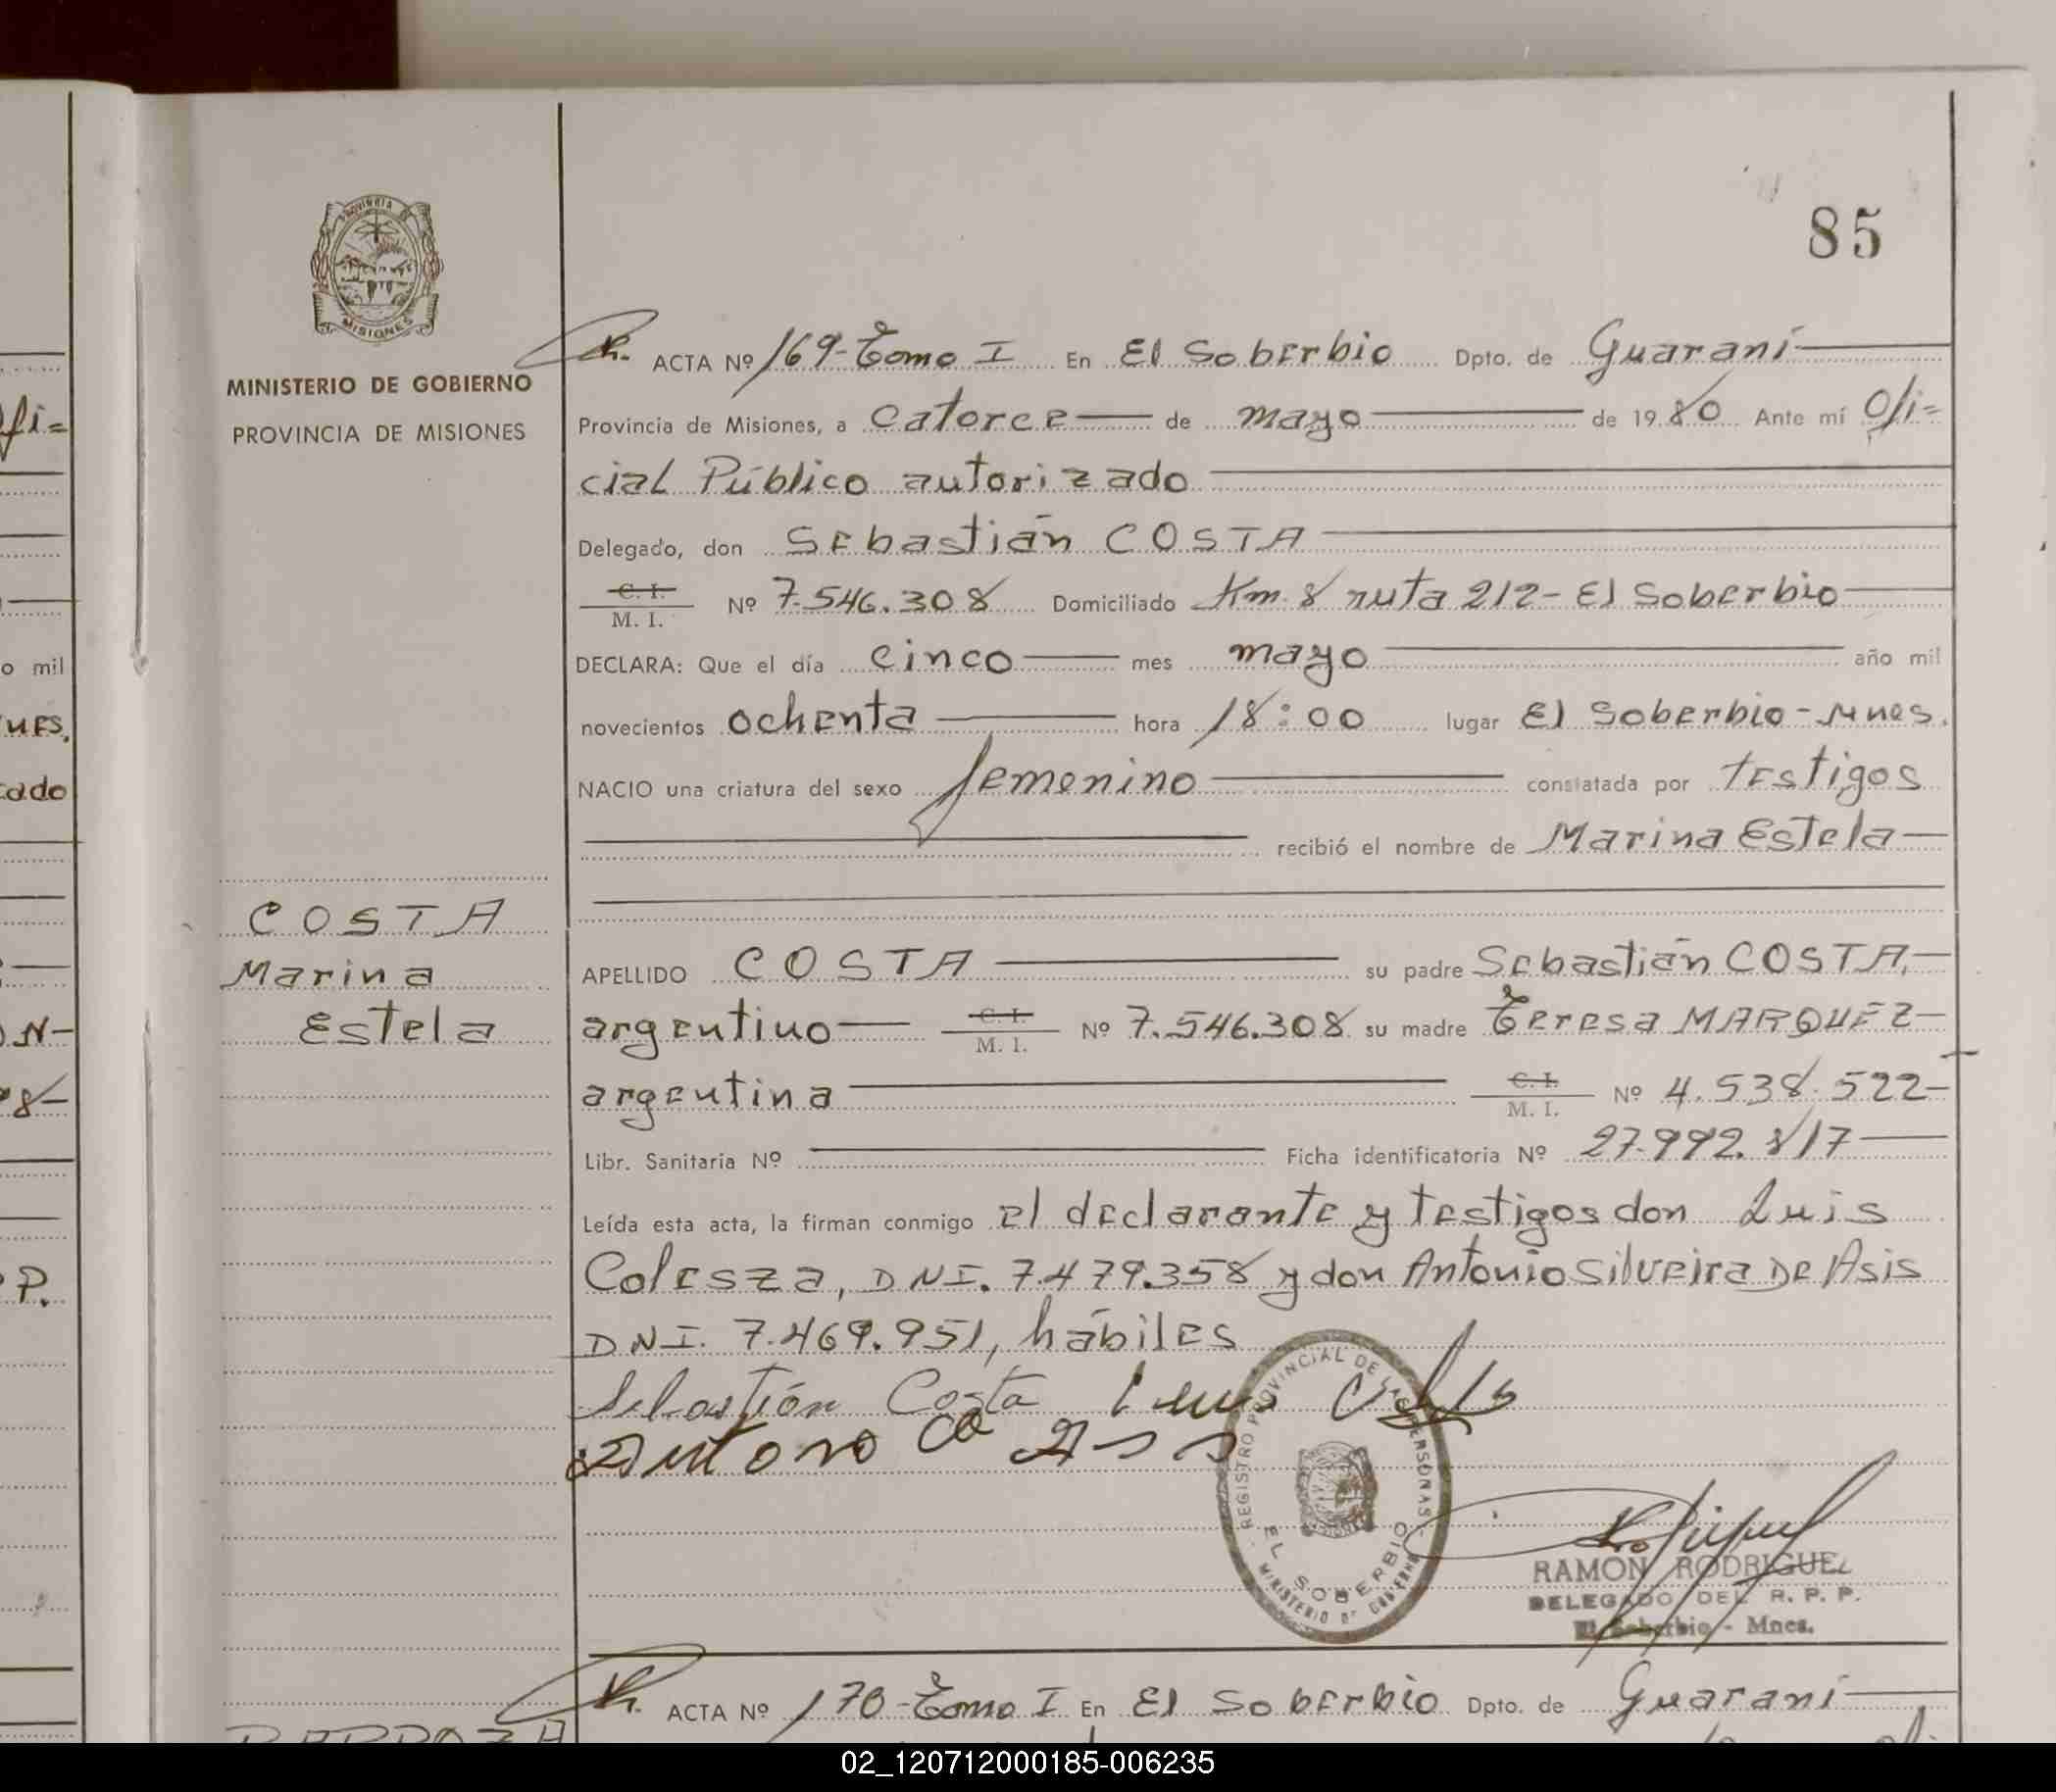 85
PROVINCIA DE
MISIONES
MINISTERIO DE GOBIERNO
PROVINCIA DE MISIONES
ACTA Nº 169-Tomo I En El Soberbio Dpto. de Guaraní
Provincia de Misiones, a catorce de mayo de 1980 Ante mí Ofi=
cial Público autorizado
Delegado, don Sebastián COSTA
C. I.
M. I. Nº 7.546.308 Domiciliado Km 8 ruta 212- El Soberbio
DECLARA: Que el día cinco mes mayo año mil
novecientos ochenta hora 18:00 lugar El Soberbio-Mnes.
NACIO una criatura del sexo femenino constatada por testigos
recibió el nombre de Marina Estela
COSTA
Marina
Estela
APELLIDO COSTA su padre Sebastián COSTA,
argentino C. I. M. I. Nº 7.546.308 su madre Teresa MARQUEZ
argentina C. I. M. I. Nº 4.538.522-
Libr. Sanitaria Nº Ficha identificatoria Nº 27.992.817
Leída esta acta, la firman conmigo el declarante y testigos don Luis
Colesza, DNI. 7.479.358 y don Antonio Silveira De Asis
DNI. 7.469.951, hábiles
Sebastián Costa Luis
REGISTRO PROVINCIAL DE LAS PERSONAS
EL SOBERBIO
MINISTERIO DE GOBIERNO
RAMON RODRIGUEZ
DELEGADO DEL R. P. P.
El Soberbio - Mnes.
ACTA Nº 170-Tomo I En El Soberbio Dpto. de Guaraní
ofi=
o mil
cado
P.
02_120712000185-006235